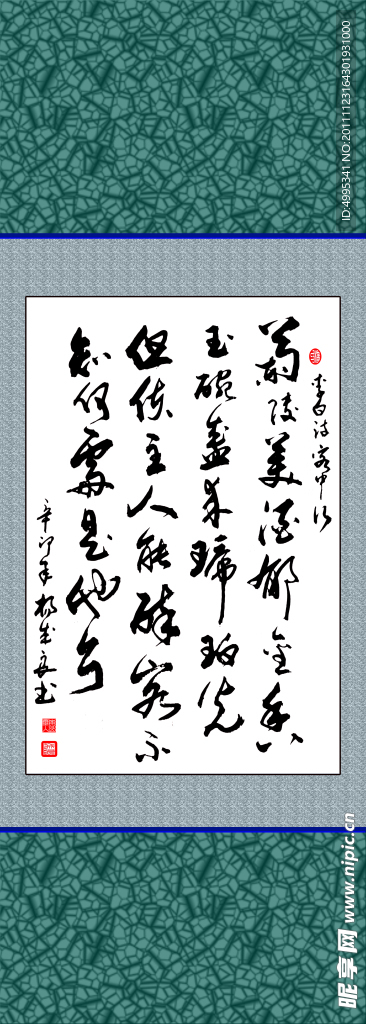 李白诗客中行
蘭陵美酒郁金香
玉碗盛来琥珀光
但使主人能醉客不
知何處是他乡
辛卯年杨书
ID:4995341 NO:20111123164301931000
昵享网 www.nipic.cn